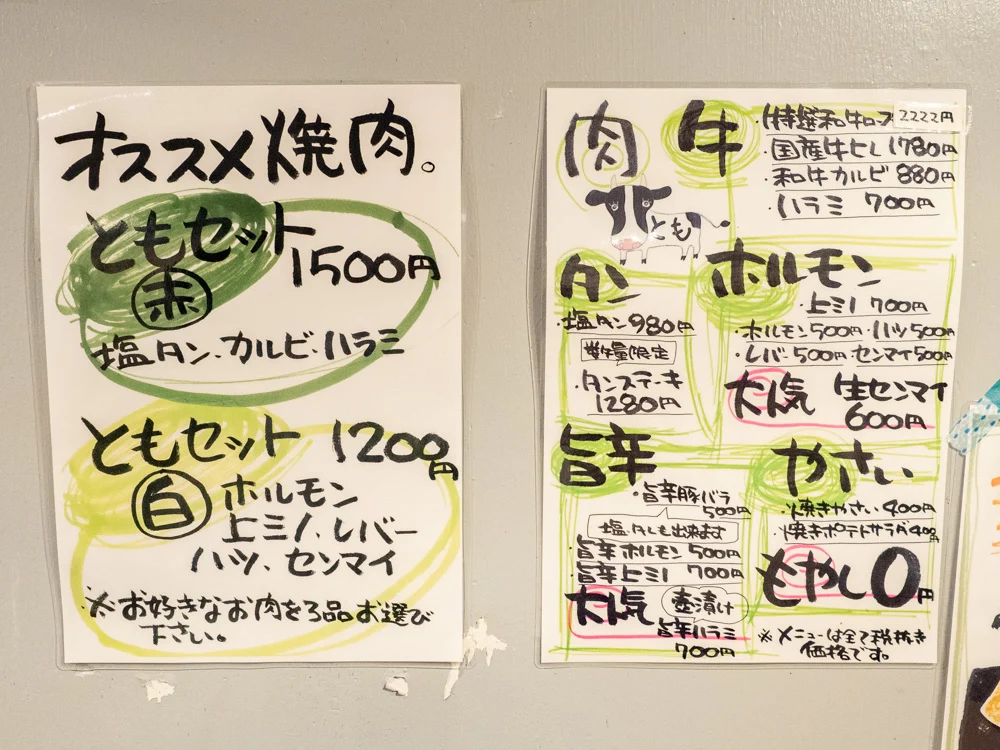 オススメ焼肉。
ともセット
1500円
赤
塩タン、カルビ、ハラミ
ともセット 1200円
白
ホルモン
上ミノ、レバー
ハツ、センマイ
※お好きなお肉を3品お選び
下さい。
肉
とも
牛
・特選和牛ロース 2222円
・国産牛ヒレ 1780円
・和牛カルビ 880円
・ハラミ 700円
タン
・塩タン 980円
数量限定
・タンステーキ
1280円
ホルモン
・上ミノ 700円
・ホルモン500円・ハツ500円
・レバー500円・センマイ500円
大人気 生センマイ
600円
旨辛
・旨辛豚バラ
500円
塩タレも出来ます
旨辛ホルモン 500円
旨辛上ミノ 700円
大人気 壺漬け
旨辛ハラミ
700円
やさい
・焼きやさい 400円
・焼きポテトサラダ400円
もやし0円
※メニューは全て税抜き
価格です。